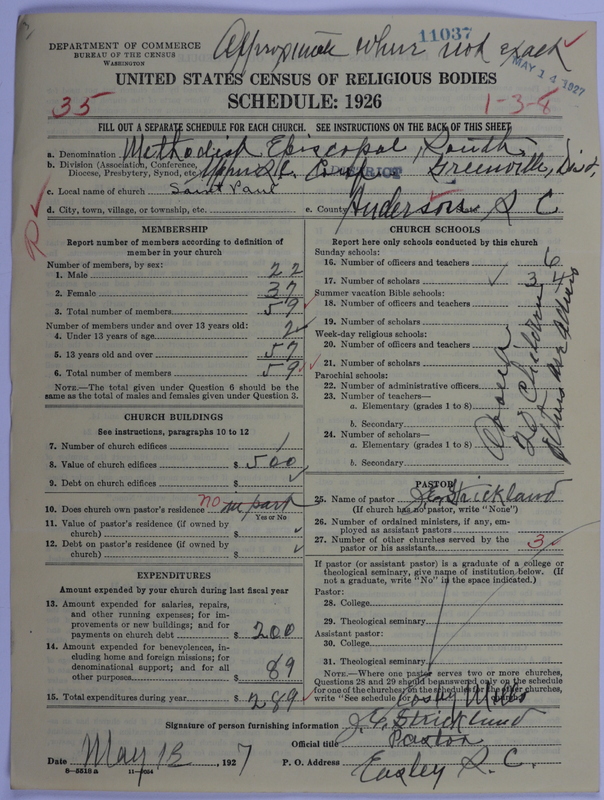 11037
DEPARTMENT OF COMMERCE
BUREAU OF THE CENSUS
WASHINGTON
Approximate where not exact
MAY 14 1927
UNITED STATES CENSUS OF RELIGIOUS BODIES
SCHEDULE: 1926
35
1-3-8
FILL OUT A SEPARATE SCHEDULE FOR EACH CHURCH. SEE INSTRUCTIONS ON THE BACK OF THIS SHEET
a. Denomination Methodist Episcopal, South
b. Division (Association, Conference, Diocese, Presbytery, Synod, etc. Upper S.C. Conf. DISTRICT Greenville, Dist,
c. Local name of church Saint Paul
d. City, town, village, or township, etc.
e. County Anderson S C
MEMBERSHIP
Report number of members according to definition of
member in your church
Number of members, by sex:
1. Male 22
2. Female 37
3. Total number of members. 59
Number of members under and over 13 years old:
4. Under 13 years of age. 2
5. 13 years old and over 57
6. Total number of members 59
NOTE.—The total given under Question 6 should be the
same as the total of males and females given under Question 3.
CHURCH BUILDINGS
See instructions, paragraphs 10 to 12
7. Number of church edifices 1
8. Value of church edifices $ 500
9. Debt on church edifices $
10. Does church own pastor's residence no in part
Yes or No
11. Value of pastor's residence (if owned by
church) $
12. Debt on pastor's residence (if owned by
church) $
EXPENDITURES
Amount expended by your church during last fiscal year
13. Amount expended for salaries, repairs,
and other running expenses; for im-
provements or new buildings; and for
payments on church debt $ 200
14. Amount expended for benevolences, in-
cluding home and foreign missions; for
denominational support; and for all
other purposes $ 89
15. Total expenditures during year $ 289
CHURCH SCHOOLS
Report here only schools conducted by this church
Sunday schools:
16. Number of officers and teachers 6
17. Number of scholars 34
Summer vacation Bible schools:
18. Number of officers and teachers
19. Number of scholars
Week-day religious schools:
20. Number of officers and teachers
21. Number of scholars
Parochial schools:
22. Number of administrative officers
23. Number of teachers—
a. Elementary (grades 1 to 8)
b. Secondary
24. Number of scholars—
a. Elementary (grades 1 to 8)
b. Secondary
About
20 Children
PASTOR
25. Name of pastor J. C. Strickland
(If church has no pastor, write "None")
26. Number of ordained ministers, if any, em-
ployed as assistant pastors
27. Number of other churches served by the
pastor or his assistants 3
If pastor (or assistant pastor) is a graduate of a college or
theological seminary, give name of institution below. (If
not a graduate, write "No" in the space indicated.)
Pastor:
28. College
29. Theological seminary
Assistant pastor:
30. College
31. Theological seminary
NOTE.—Where one pastor serves two or more churches,
Questions 28 and 29 should be answered only on the schedule
for one of the churches; on the schedules for the other churches,
write "See schedule for
Signature of person furnishing information J. C. Strickland
Official title Pastor
Date May 13, 1927
P. O. Address Easley S. C.
8—5518 a 11—9054